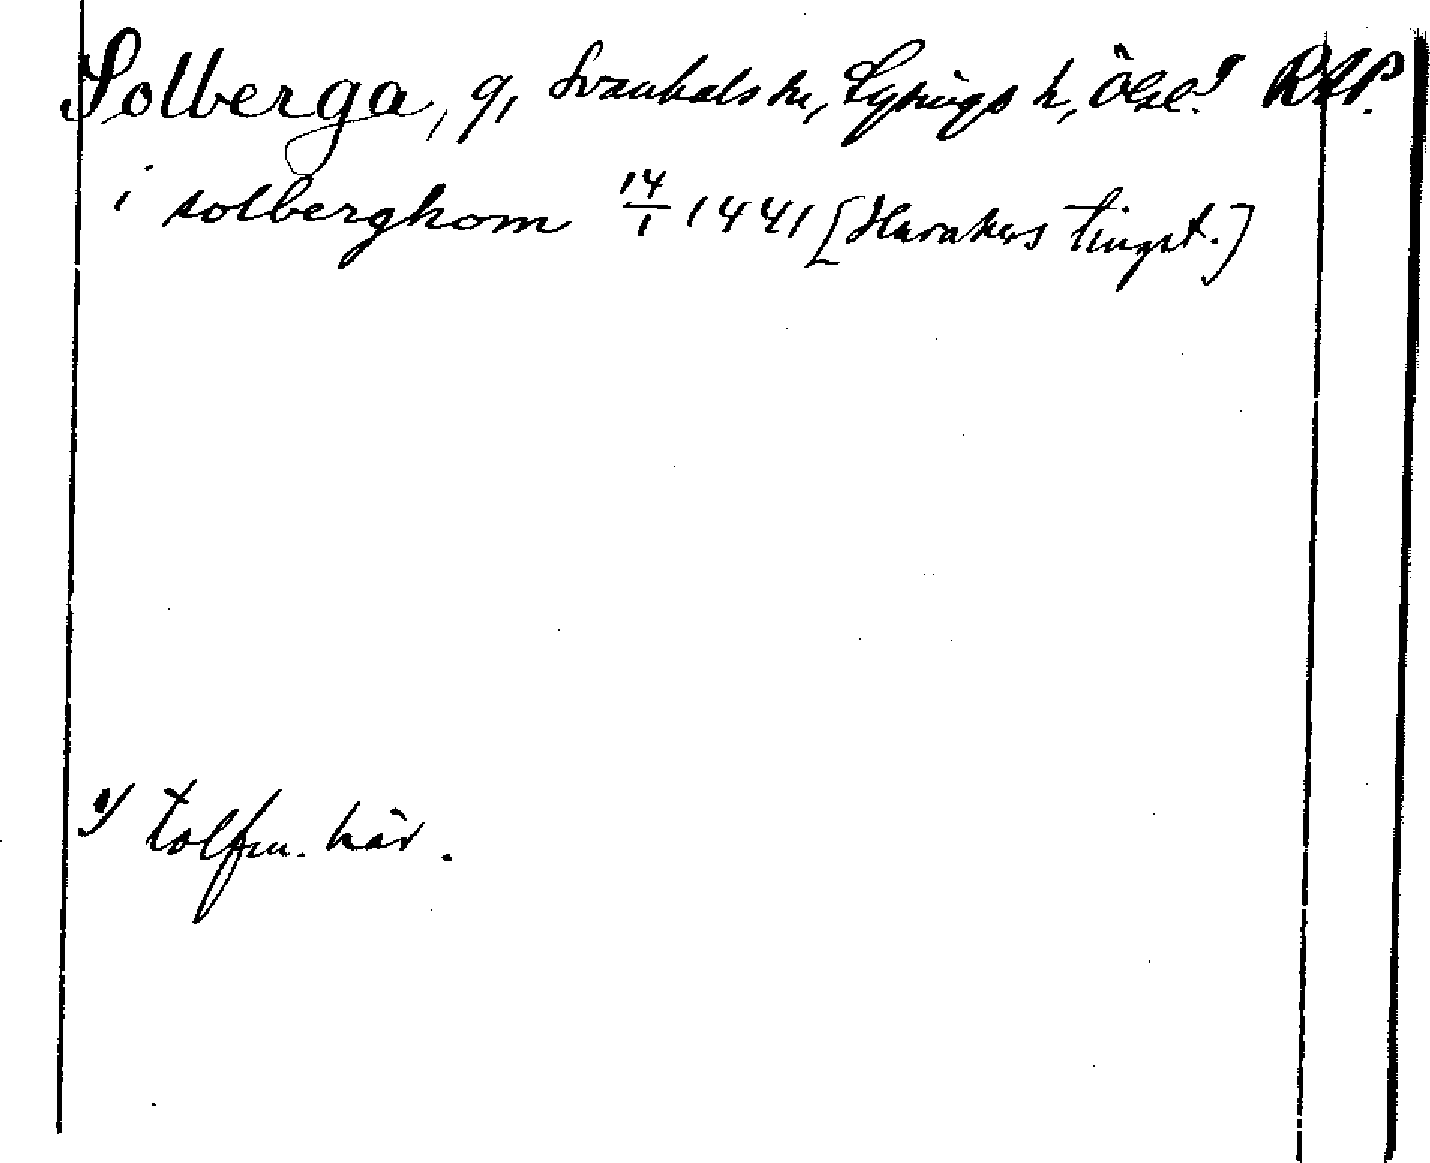 Solberga, g, Svanhals sn, Lysings h, Ögl.¹⁾ RAP.
i solberghom 14/1 1441 [Harakers tingst.]
¹⁾ tolfm. här.